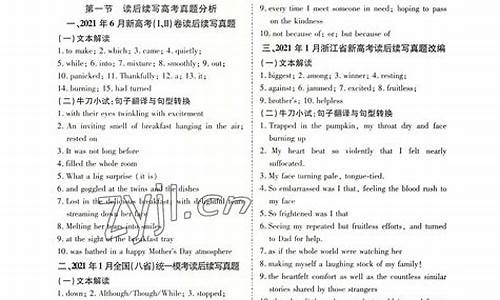 第一节 读后续写高考真题分析
一、2021 年 6 月新高考(I,II)卷读后续写真题
(一)文本解读
1. to make; 2. which; 3. came; 4. quietly;
5. while; 6. into; 7. mixture; 8. smoothly; 9. out;
10. panicked; 11. Thankfully; 12. a; 13. it;
14. burning; 15. had turned
(二)牛刀小试:句子翻译与句型转换
1. with their eyes twinkling with excitement
2. An inviting smell of breakfast hanging in the air;
rested on
3. It was not long before
4. filled the whole room
5. What a big surprise (it is)
6. and goggled at the twins and the dishes
7. Lost in the delicious breakfast, with delightful tears
streaming down her face
8. Melting her tears into smiles
9. at the sight of the breakfast tray
10. was bathed in a happy Mother's Day atmosphere
二、2021 年 1 月全国(八省)统一模考读后续写真题
(一)文本解读
1. down; 2. Although/Though/While; 3. stopped;
9. every time I meet someone in need; hoping to pass
on the kindness
10. not because of; or; but because of
三、2021 年 1 月浙江省新高考读后续写真题改编
(一)文本解读
1. biggest; 2. among; 3. winner; 4. resting;
5. against; 6. jammed; 7. excited; 8. fruitless;
9. brother's; 10. helpless
(二)牛刀小试:句子翻译与句型转换
1. Trapped in the pumpkin, my throat dry and face
burning up
2. My heart beat so violently that I felt nearly
suffocated.
3. My face turning pale, tongue-tied.
4. So embarrassed was I that, feeling the blood rush to
my face
5. So frightened was I that
6. Seeing my repeated but fruitless efforts, and turned
to Dad for help.
7. as if the whole world were watching her
8. making myself a laughing stock of my family!
9. the heartfelt comfort as well as the countless similar
stories shared by those strangers